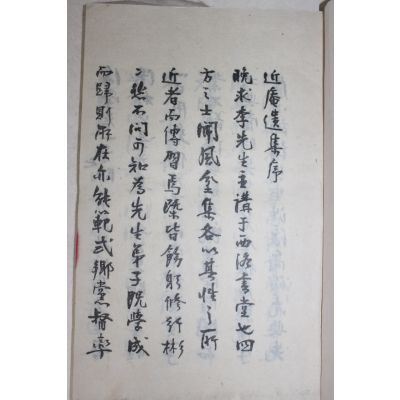 近庵遺集序
晩求李先生主講于西洛書堂也四
方之士聞風坌集各以其性之所
近者而傳習焉槩皆飭躬修行彬
〻然不問可知爲先生弟子旣學成
而歸則所在亦能範式鄕黨督率